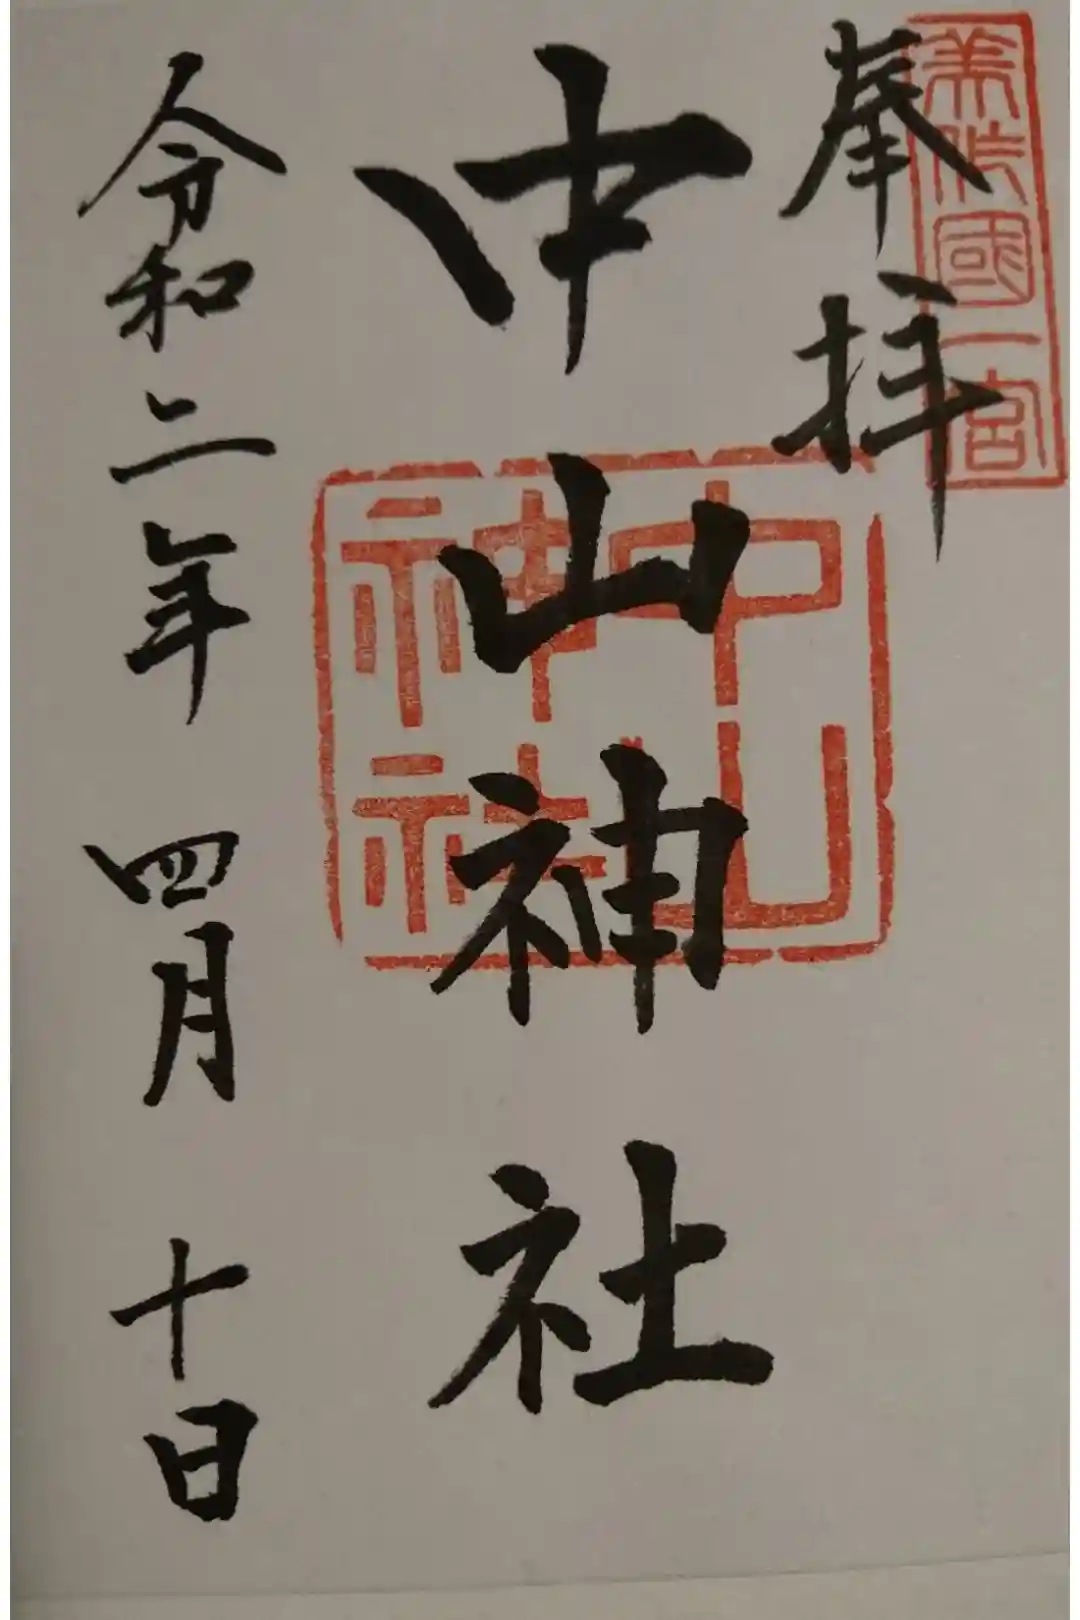 美作國一宮
奉拝
中山神社
中山
神社
令和二年 四月 十日